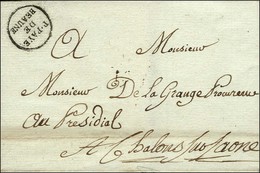 P.PAYÉ
DE
BEAUNE
A Monsieur
Monsieur De la Grange Procureur
au Presidial
A Chalons sur Saone